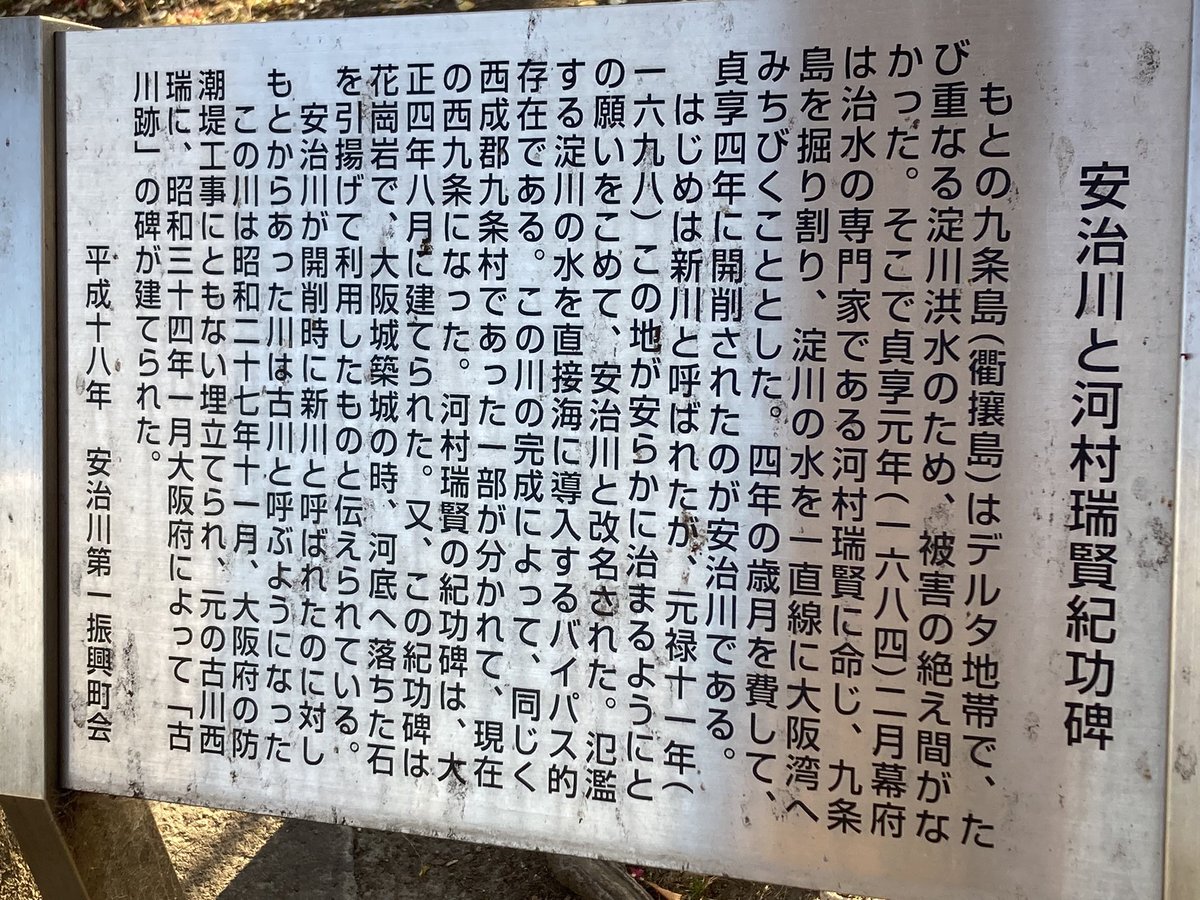 安治川と河村瑞賢紀功碑
もとの九条島(衢攘島)はデルタ地帯で、た
び重なる淀川洪水のため、被害の絶え間がな
かった。そこで貞享元年(一六八四)二月幕府
は治水の専門家である河村瑞賢に命じ、九条
島を掘り割り、淀川の水を一直線に大阪湾へ
みちびくこととした。四年の歳月を費して、
貞享四年に開削されたのが安治川である。
はじめは新川と呼ばれたが、元禄十一年(
一六九八)この地が安らかに治まるようにと
の願いをこめて、安治川と改名された。氾濫
する淀川の水を直接海に導入するバイパス的
存在である。この川の完成によって、同じく
西成郡九条村であった一部が分かれて、現在
の西九条になった。河村瑞賢の紀功碑は、大
正四年八月に建てられた。又、この紀功碑は
花崗岩で、大阪城築城の時、河底へ落ちた石
を引揚げて利用したものと伝えられている。
安治川が開削時に新川と呼ばれたのに対し
もとからあった川は古川と呼ぶようになった
この川は昭和二十七年十一月、大阪府の防
潮堤工事にともない埋立てられ、元の古川西
瑞に、昭和三十四年一月大阪府によって「古
川跡」の碑が建てられた。
平成十八年 安治川第一振興町会